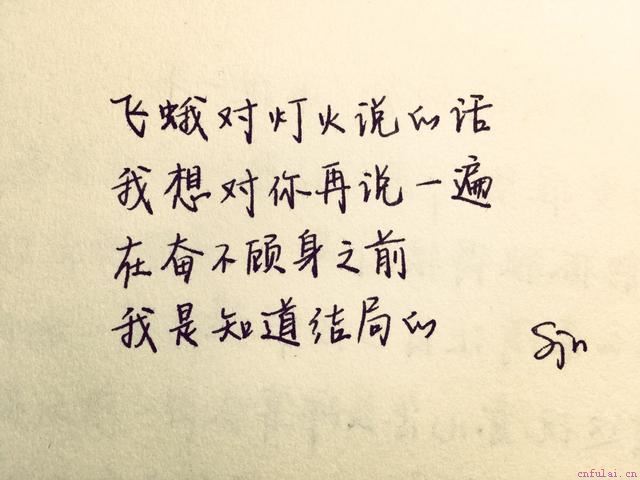 飞蛾对灯火说的话
我想对你再说一遍
在奋不顾身之前
我是知道结局的
Sjn
cnfulai.cn